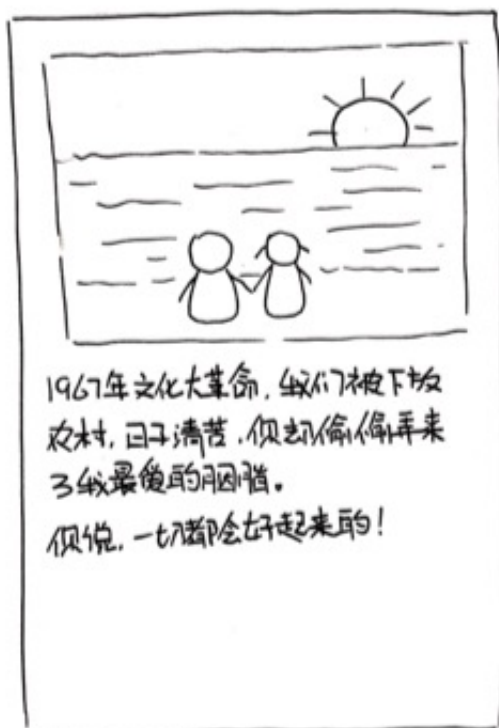 1967年文化大革命，我们被下放
农村，日子清苦，你却偷偷弄来
了我最爱的胭脂。
你说，一切都会好起来的！